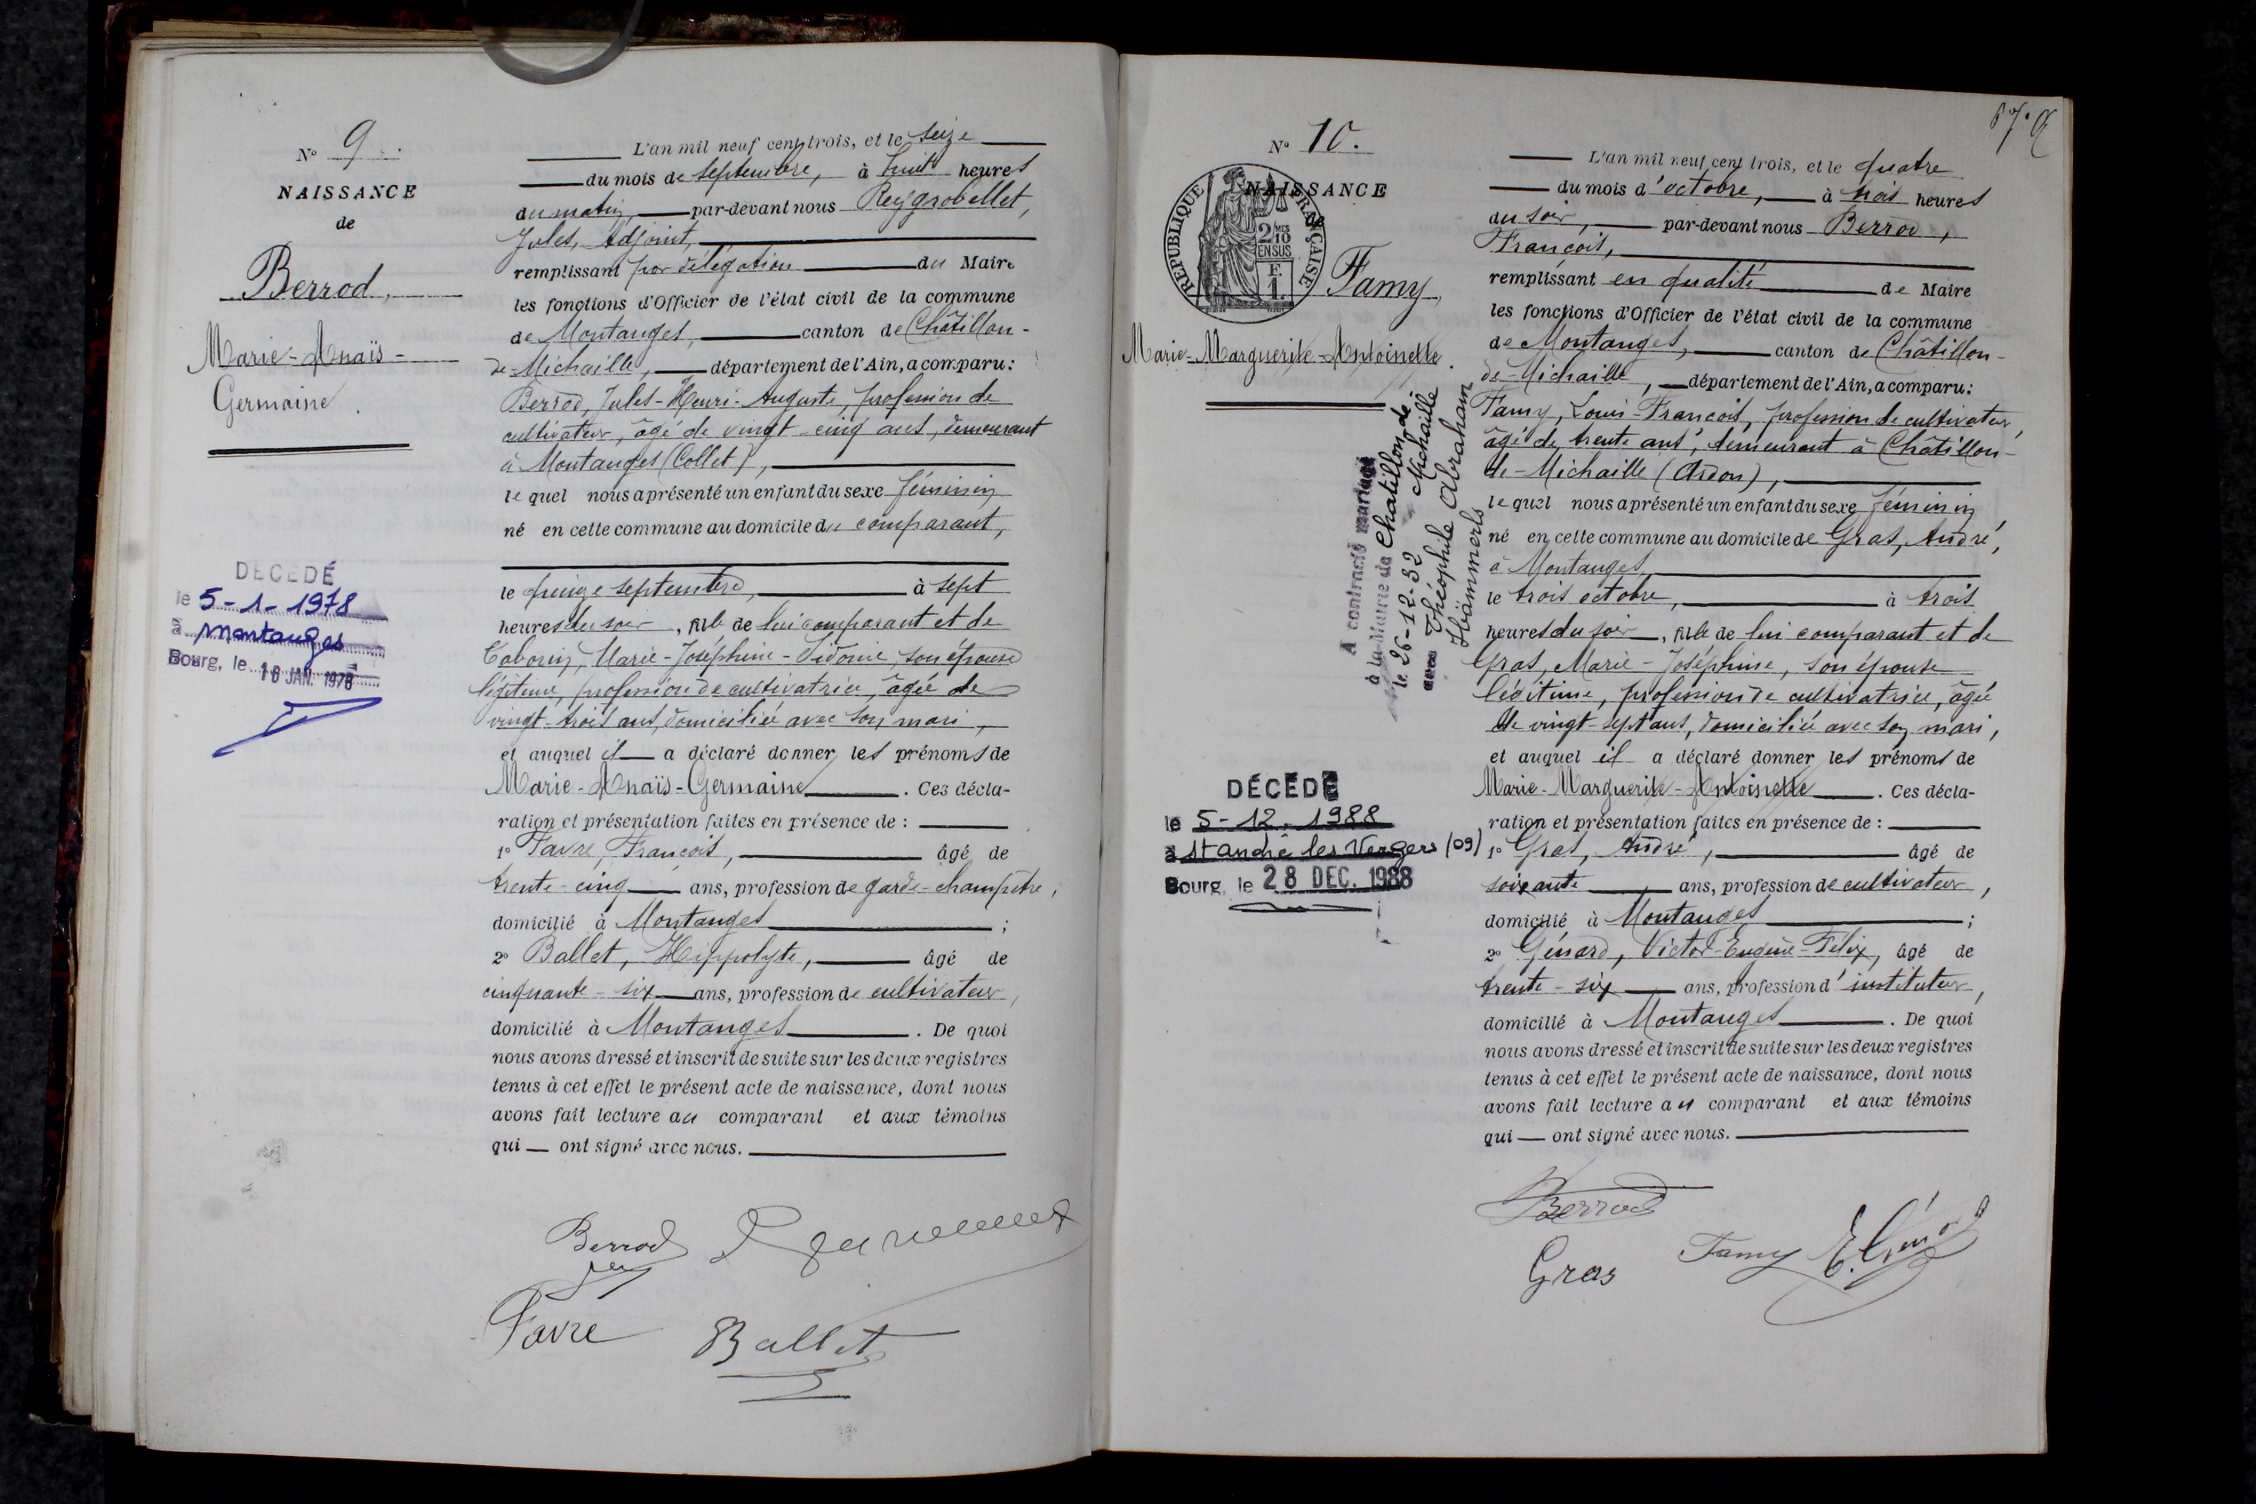 N° 9.
NAISSANCE
de
Berrod,
Marie-Anaïs-
Germaine.
DÉCÉDÉ
le 5-1-1978
à Montanges
Bourg, le 18 JAN. 1978
L'an mil neuf cent trois, et le seize
du mois de septembre, à huit heures
du matin, par-devant nous Reygrobellet,
Jules, Adjoint,
remplissant par délégation du Maire
les fonctions d'Officier de l'état civil de la commune
de Montanges, canton de Châtillon-
de-Michaille, département de l'Ain, a comparu:
Berrod, Jules-Henri-Auguste, profession de
cultivateur, âgé de vingt-cinq ans, demeurant
à Montanges (Collet),
lequel nous a présenté un enfant du sexe féminin
né en cette commune au domicile du comparant,
le quinze septembre, à sept
heures du soir, fille de lui comparant et de
Marie-Joséphine-Sidonie, son épouse
légitime, profession de cultivatrice, âgée de
vingt-trois ans, domiciliée avec son mari,
et auquel il a déclaré donner les prénoms de
Marie-Anaïs-Germaine. Ces décla-
ration et présentation faites en présence de :
1° Favre, François, âgé de
trente-cinq ans, profession de garde-champêtre,
domicilié à Montanges ;
2° Ballet, Hippolyte, âgé de
cinquante-six ans, profession de cultivateur,
domicilié à Montanges. De quoi
nous avons dressé et inscrit de suite sur les deux registres
tenus à cet effet le présent acte de naissance, dont nous
avons fait lecture au comparant et aux témoins
qui ont signé avec nous.
Berrod
Favre
Ballet
N° 10.
NAISSANCE
de
RÉPUBLIQUE FRANÇAISE
2/10 MES
EN SUS
F.
1.
Famy,
Marie-Marguerite-Antoinette.
A contracté mariage
à la Mairie de Chatillon de
Michaille
le 26-12-32
avec Théophile Abraham
Hämmerls
DÉCÉDÉ
le 5-12-1988
à St andré les Vergers (09)
Bourg, le 28 DEC. 1988
L'an mil neuf cent trois, et le quatre
du mois d'octobre, à trois heures
du soir, par-devant nous Berrod,
François,
remplissant en qualité de Maire
les fonctions d'Officier de l'état civil de la commune
de Montanges, canton de Châtillon-
de-Michaille, département de l'Ain, a comparu:
Famy, Louis-François, profession de cultivateur,
âgé de trente ans, demeurant à Châtillon-
de-Michaille (Ardon),
lequel nous a présenté un enfant du sexe féminin
né en cette commune au domicile de Gras, André,
à Montanges,
le trois octobre, à trois
heures du soir, fille de lui comparant et de
Gras, Marie-Joséphine, son épouse
légitime, profession de cultivatrice, âgée
de vingt-sept ans, domiciliée avec son mari,
et auquel il a déclaré donner les prénoms de
Marie-Marguerite-Antoinette. Ces décla-
ration et présentation faites en présence de :
1° Gras, André, âgé de
soixante ans, profession de cultivateur,
domicilié à Montanges ;
2° Génard, Victor-Eugène-Félix, âgé de
trente-six ans, profession d'instituteur,
domicilié à Montanges. De quoi
nous avons dressé et inscrit de suite sur les deux registres
tenus à cet effet le présent acte de naissance, dont nous
avons fait lecture au comparant et aux témoins
qui ont signé avec nous.
Berrod
Gras Famy